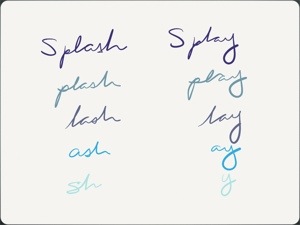 Splash Splay
plash play
lash lay
ash ay
sh y